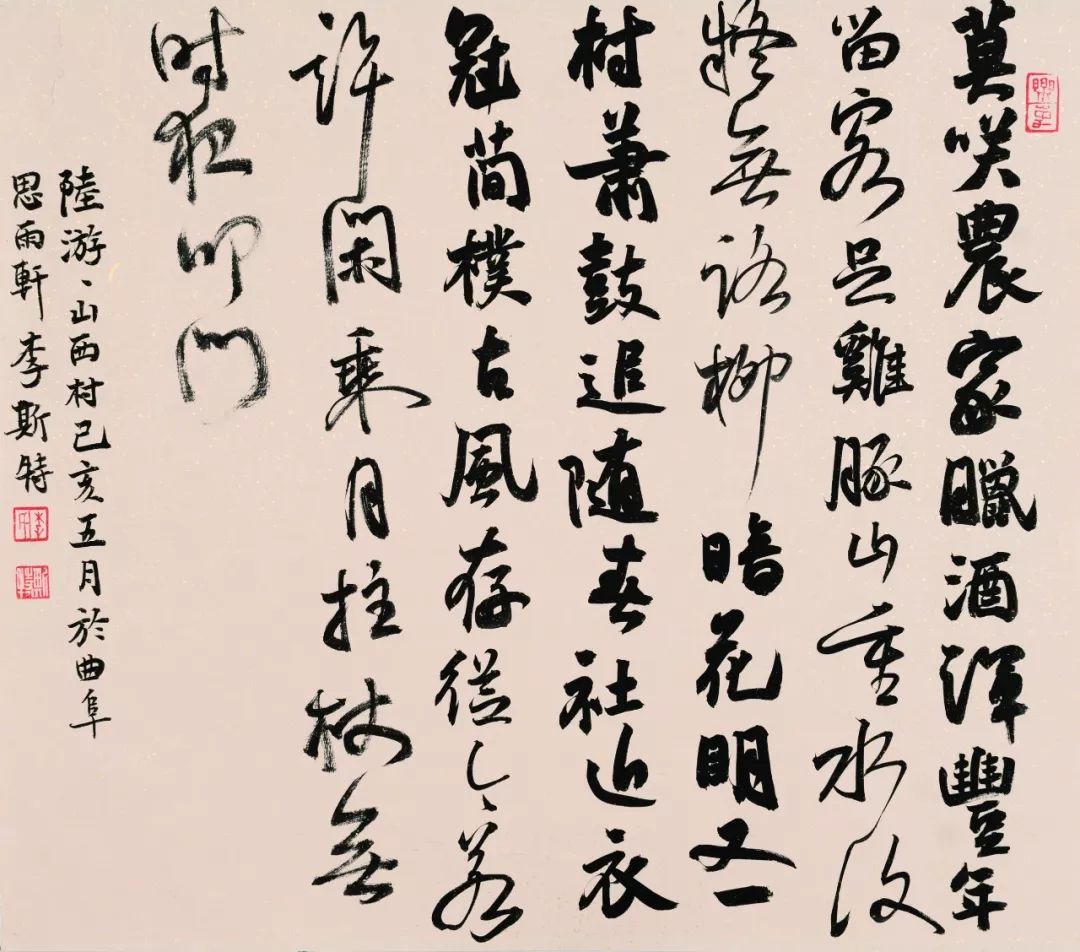 莫咲農家臘酒渾豐年
留客足雞豚山重水復
疑無路柳暗花明又一
村蕭鼓追随春社近衣
冠簡樸古風存從今若
許閑乘月拄杖無
時夜叩門
陸游、山西村己亥五月於曲阜
思雨軒李斯特
斯特